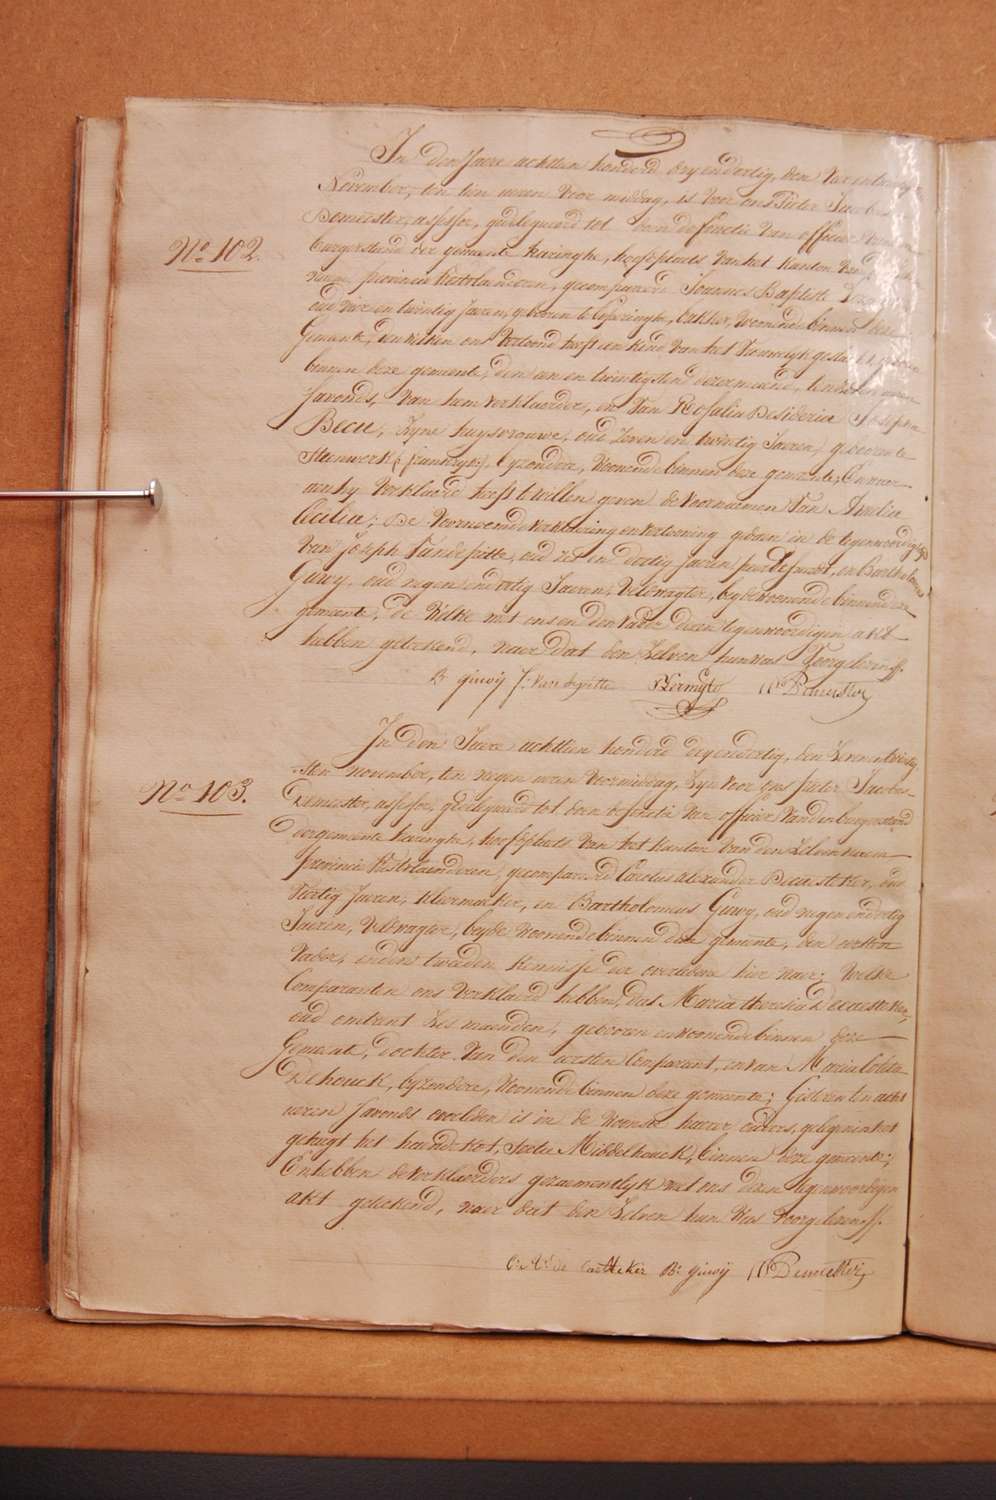 In den Jaere achttien honderd dryendertig, den vierentwin
November, ten tien uren voor middag, is voor ons Pieter Jacobus
Demeester, assessor, gedelegueerd tot doen de functie van officier van den
No. 102.
burgerstand der gemeente haringhe, hoofdplaets van het kanton van den
naem provincie Westvlaenderen, gecompareerd Joannes Baptiste
oud vier en twintig Jaeren, geboren te Poperinghe, bakker, woonende binnen deze
Gemeente, den welken ons vertoond heeft een kind van het vrouwelyk geslacht geboren
binnen deze gemeente, den een en twintigsten dezer maend, ten uren
savonds, van hem verklaerder, en van Rosalia Desideria Josepha
Becu, zyne huysvrouwe, oud zeven en twintig Jaeren, geboren te
Steenwerk (frankryk), byzondere, woonende binnen deze gemeente, En waer
aen hy verklaerd heeft te willen geven de voornaemen van Amelia
Cecilia; De voornoemde verklaering en vertooning gedaen in de tegenwoordigheyd
van Joseph Vandepitte, oud zes en dertig Jaeren, en Bartholomeus
Guwy, oud negen endertig Jaeren, veldwagter, beyde woonende binnen deze
gemeente, de welke met ons en den vader dezen tegenwoordigen akt
hebben geteekend, naer dat den zelven hun was voorgelezen.
B. guwij J. Vandepitte PDemeester
In den Jaere achttien honderd dryendertig, den zevenentwintig
sten november, ten negen uren voormiddag, zyn voor ons pieter Jacobus
No. 103.
Demeester, assessor, gedelegueerd tot doen de functie van officier van den burgerstand
der gemeente haringhe, hoofdplaets van het kanton van den zelven naem
provincie Westvlaenderen, gecompareerd Carolus alexander Decaesteker, oud
veertig Jaeren, kleermaeker, en Bartholomeus Guwy, oud negen endertig
Jaeren, veldwagter, beyde woonende binnen deze gemeente, den eersten
vader, en den tweeden kennisse der overledene hier naer; welke
Comparanten ons verklaerd hebben, dat Maria theresia Decaesteker,
oud omtrent zes maenden, geboren en woonende binnen deze
Gemeente, dochter van den eersten Comparant, en van Maria Coleta
Dehouck, byzondere, woonende binnen deze gemeente; Gisteren ten acht
uren savonds overleden is in de wooning haerer ouders, gelegen in het
gehugt het haendekot, sectie Middelhouck, binnen deze gemeente;
En hebben de verklaerders gezaementlyk met ons dezen tegenwoordigen
akt geteekend, naer dat den zelven hun was voorgelezen.
C: A: de Caesteker B: guwij PDemeester